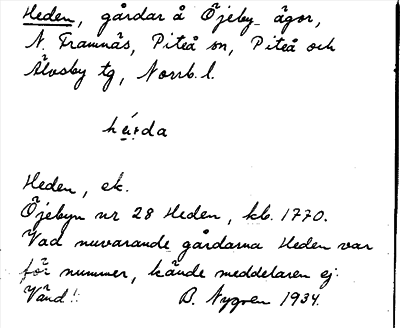 Heden, gårdar å Öjeby ägor,
N. Framnäs, Piteå sn, Piteå och
Älvsby tg, Norrb. l.
héɩda
Heden, ek.
Öjebyn nr 28 Heden, kb. 1770.
Vad nuvarande gårdarna Heden var
för nummer, kände meddelaren ej.
Vänd! B. Nygren 1934.